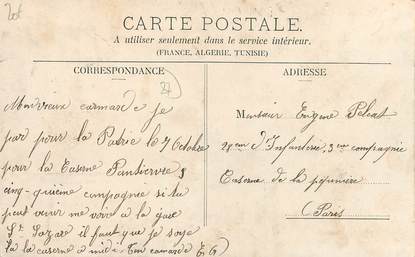 CARTE POSTALE.
A utiliser seulement dans le service intérieur.
(FRANCE, ALGERIE, TUNISIE)
CORRESPONDANCE
Mon vieux camarade je
par pour la Patrie le 7 Octobre
pour la Caserne
cinq-quième compagnie si tu
peut venir me voir a la gare
St Lazare il faut que je soye
la la caserne a midi. Ton camarde E G
ADRESSE
Monsieur Eugène
d'Infanterie, 3em compagnie
Caserne de la pépinière
Paris